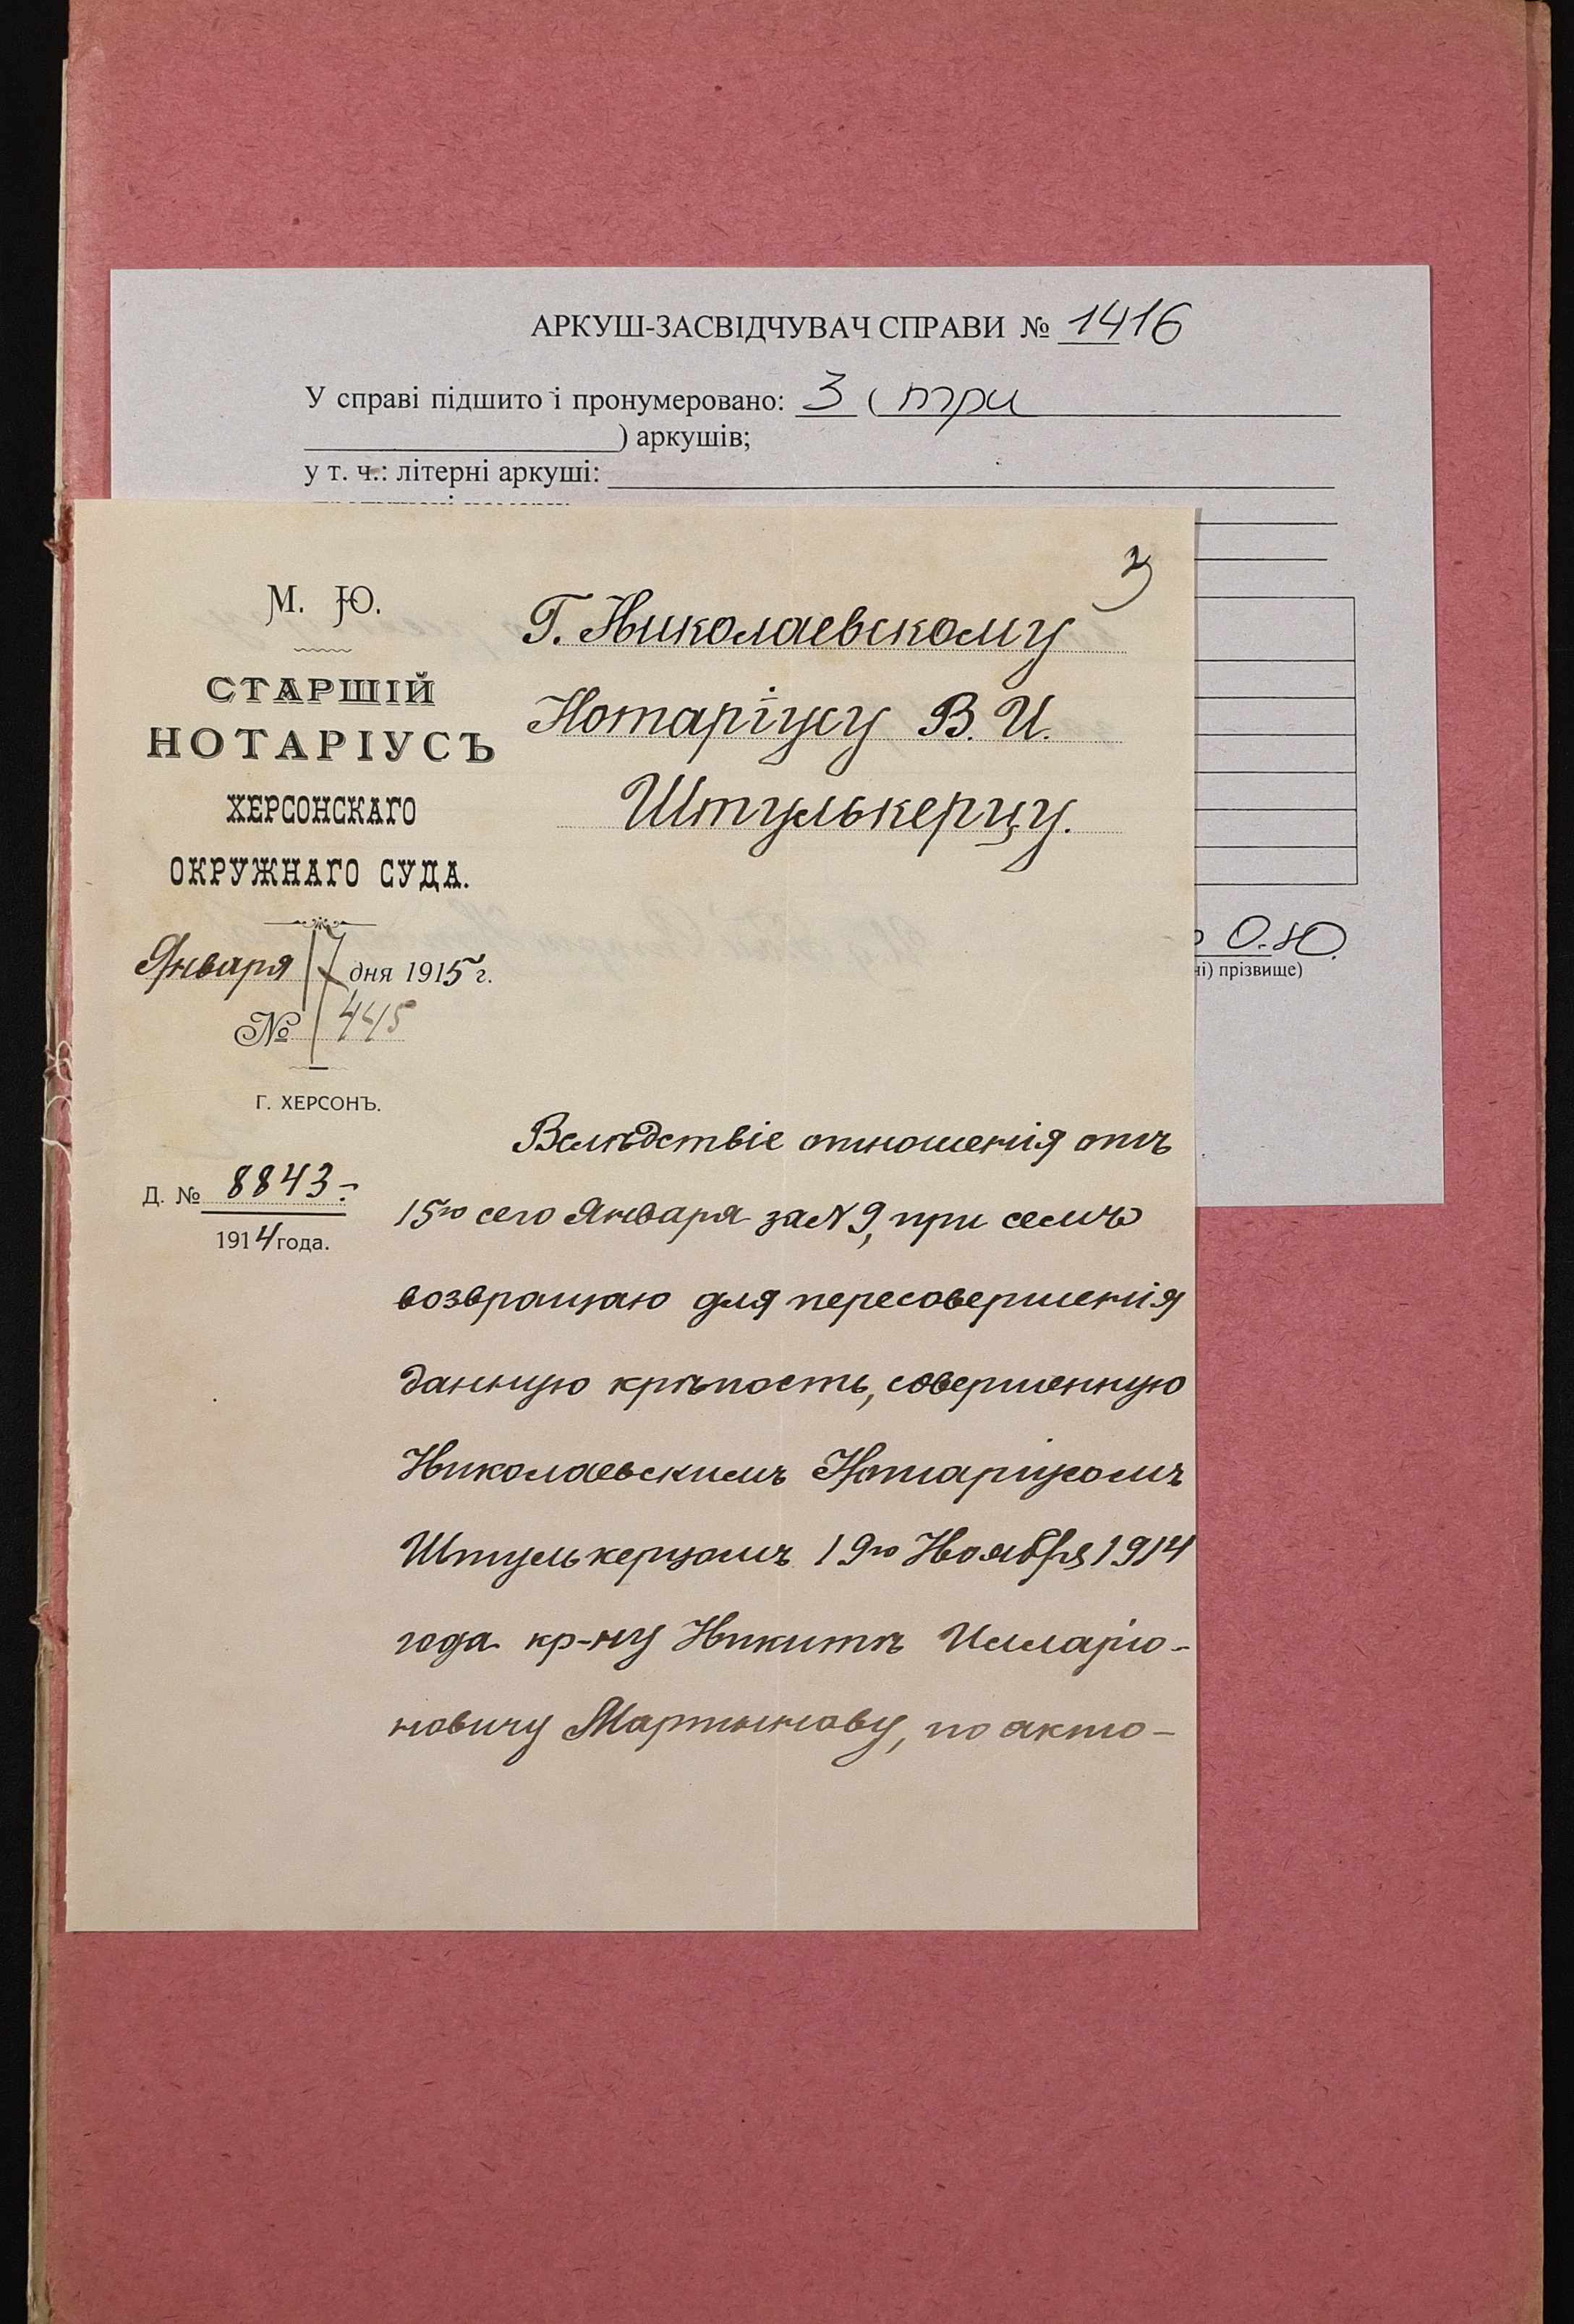 АРКУШ-ЗАСВІДЧУВАЧ СПРАВИ № 1416
У справі підшито і пронумеровано: 3 ( три
) аркушів;
у т. ч.: літерні аркуші:
3
М. Ю.
СТАРШІЙ
НОТАРІУСЪ
ХЕРСОНСКАГО
ОКРУЖНАГО СУДА.
Января 17 дня 1915 г.
№ 445
Г. ХЕРСОНЪ.
Д. № 8843.-
1914 года.
Г. Николаевскому
Нотаріусу В. И.
Штулькерцу.
Вслѣдствіе отношенія отъ
15го сего Января за N 9, при семъ
возвращаю для пересовершенія
данную крѣпость, совершенную
Николаевскимъ Нотаріусомъ
Штулькерцомъ 19го Ноября 1914
года кр-ну Никитѣ Илларіо-
новичу Мартынову, по акто-
О.Ю.
ні) прізвище)